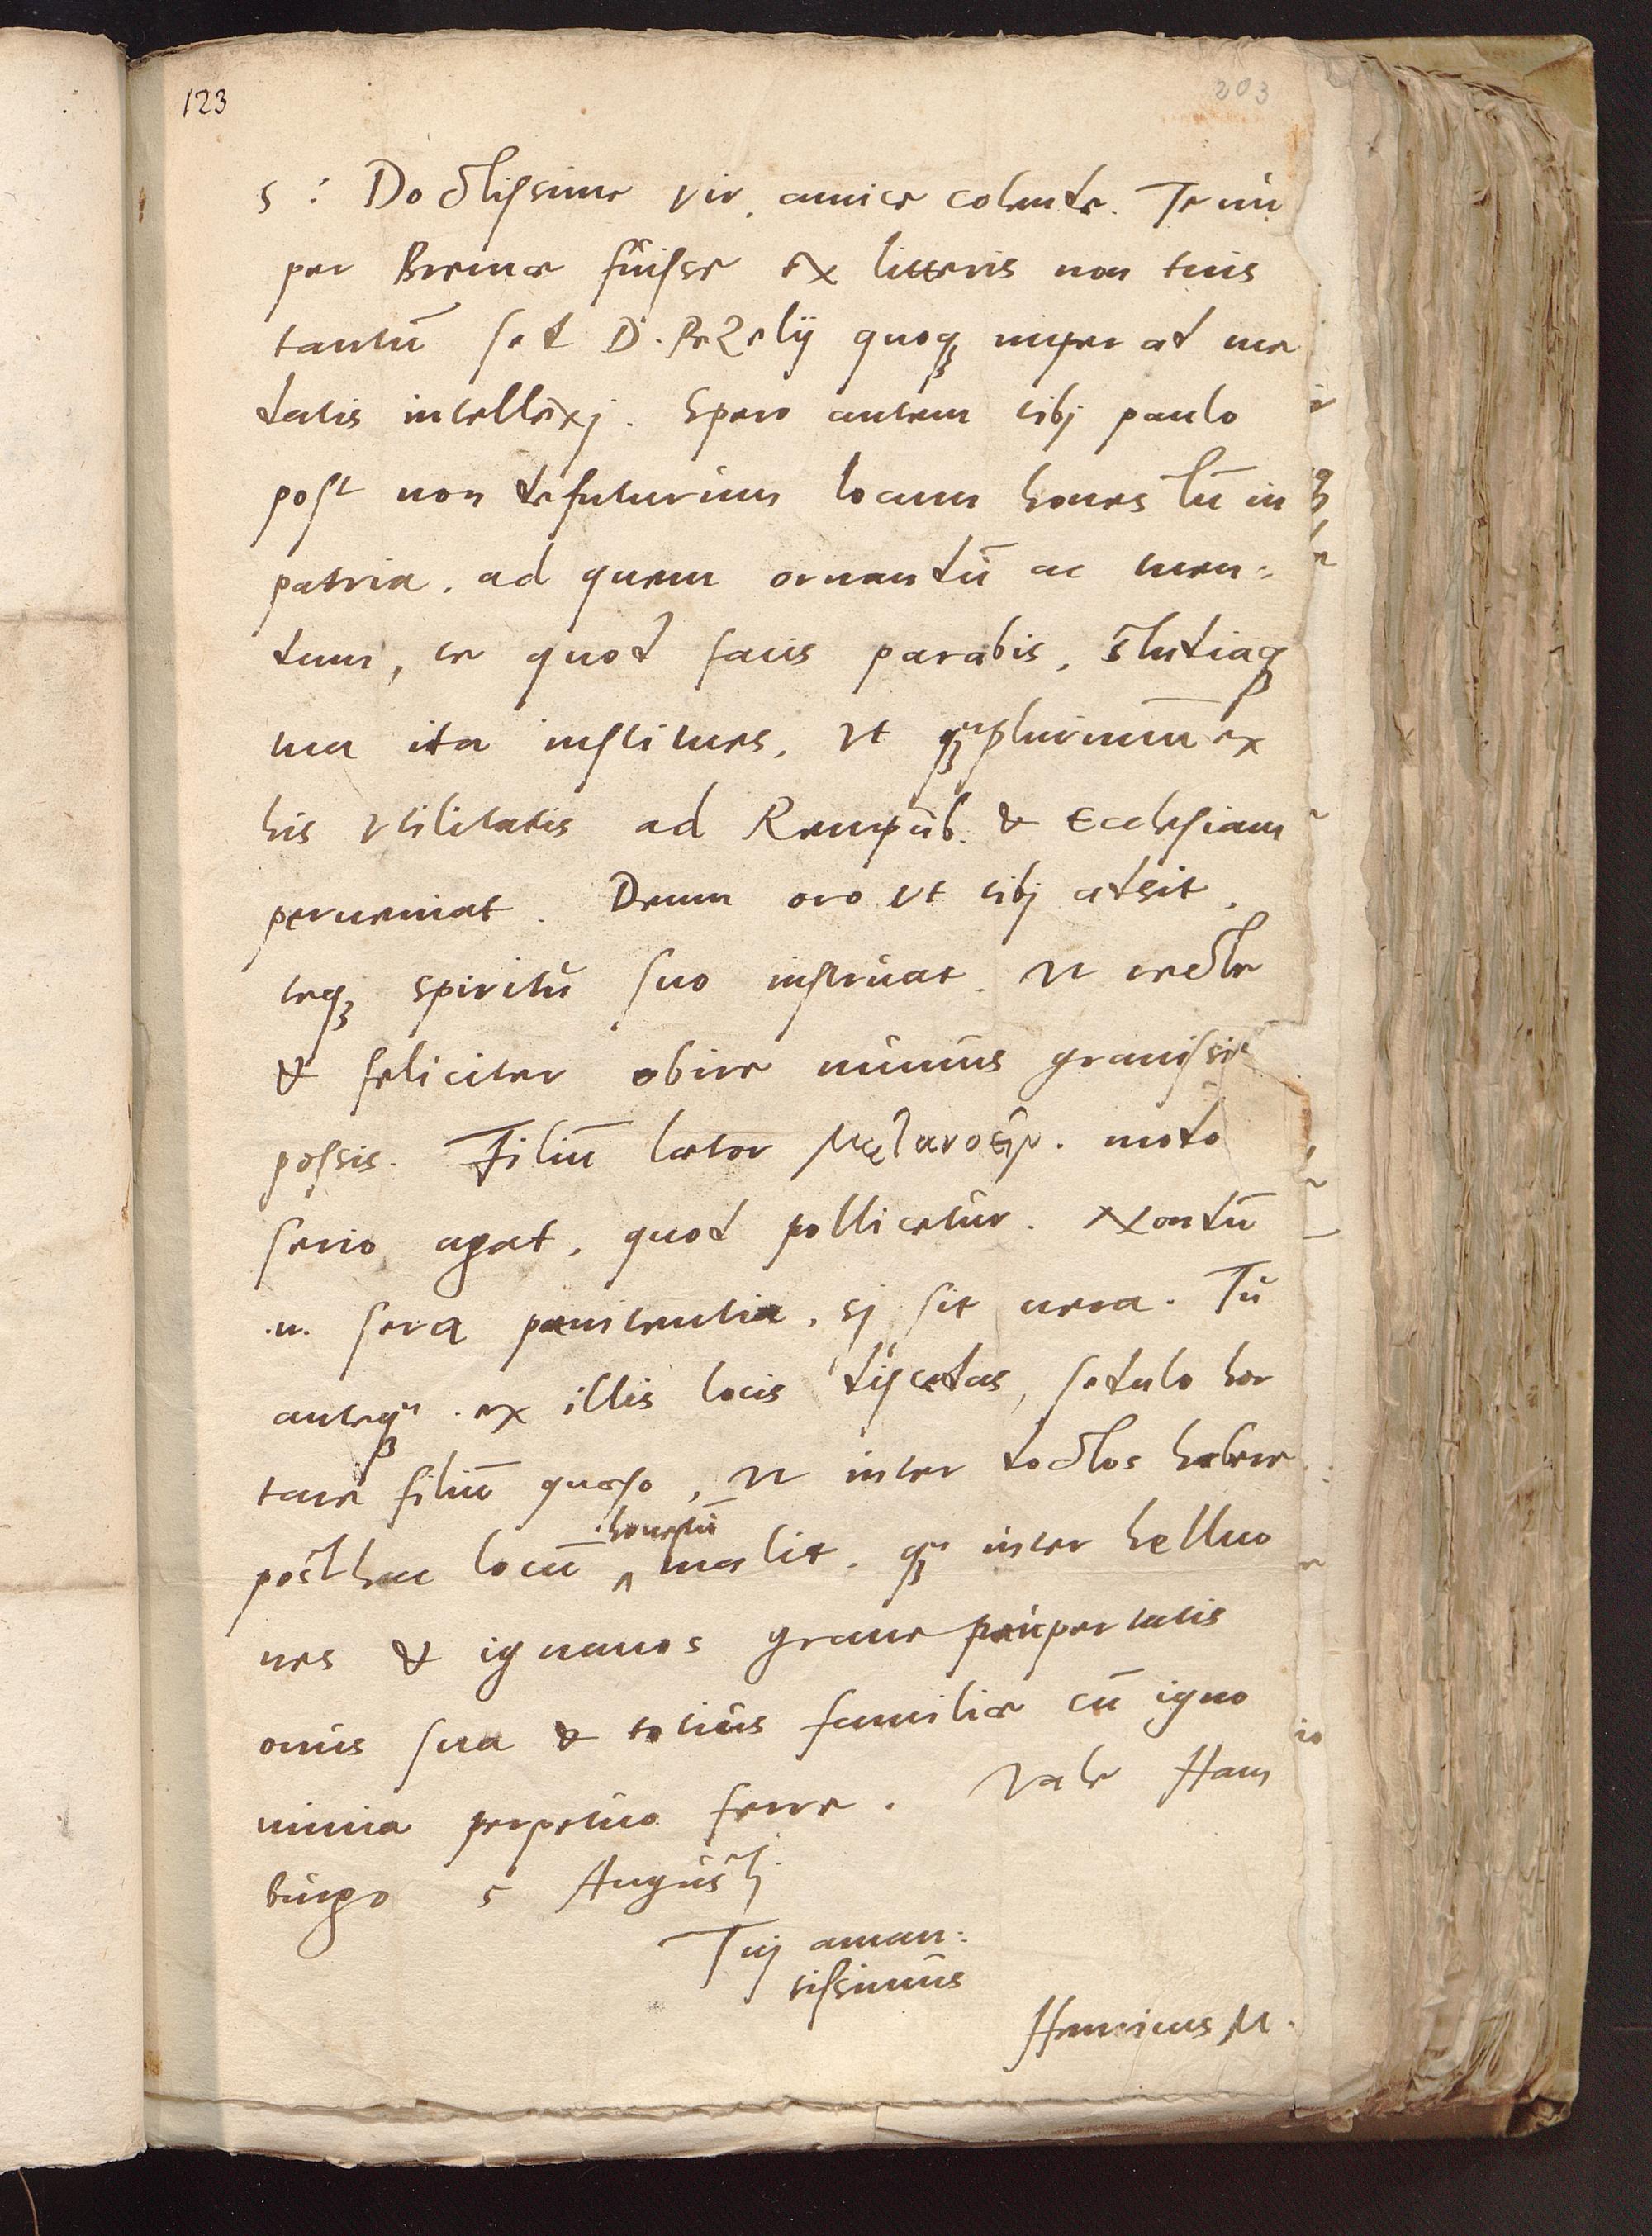 123
203
S : Doctissime vir, amice colende. Te nu
per Bremæ fuisse ex litteris non tuis
tantū sed D. Pezelij quoq; nuper ad me
datis intellexj. Spero autem tibj paulo
post non defuturum locum honestū in
patria, ad quem ornandū ac tuen=
dum, te quod facis parabis, studiaq;
tua ita institues, vt q̃plurimum ex
his vtilitatis ad Rempub. & Ecclesiam
perueniat. Deum oro vt tibj adsit,
teq; spiritu suo instruat, vt recte
& feliciter obire munus grauissi
possis. Filiū lætor μελανοεῖν. modo
serio agat, quod pollicetur. Nondū
.n. sera pœnitentia, sj sit uera. Tu
anteq; ex illis locis discedas, sedulo hor
tare filiū quæso, vt inter doctos habere
posthac locū honestū malit, q; inter helluo
nes & ignauos graue paupertatis
onus sua & totius familiæ cū igno
minia perpetuo ferre. Vale Ham
burgo 5 Augustj
Tuj aman:
tissimus
Henricus M.